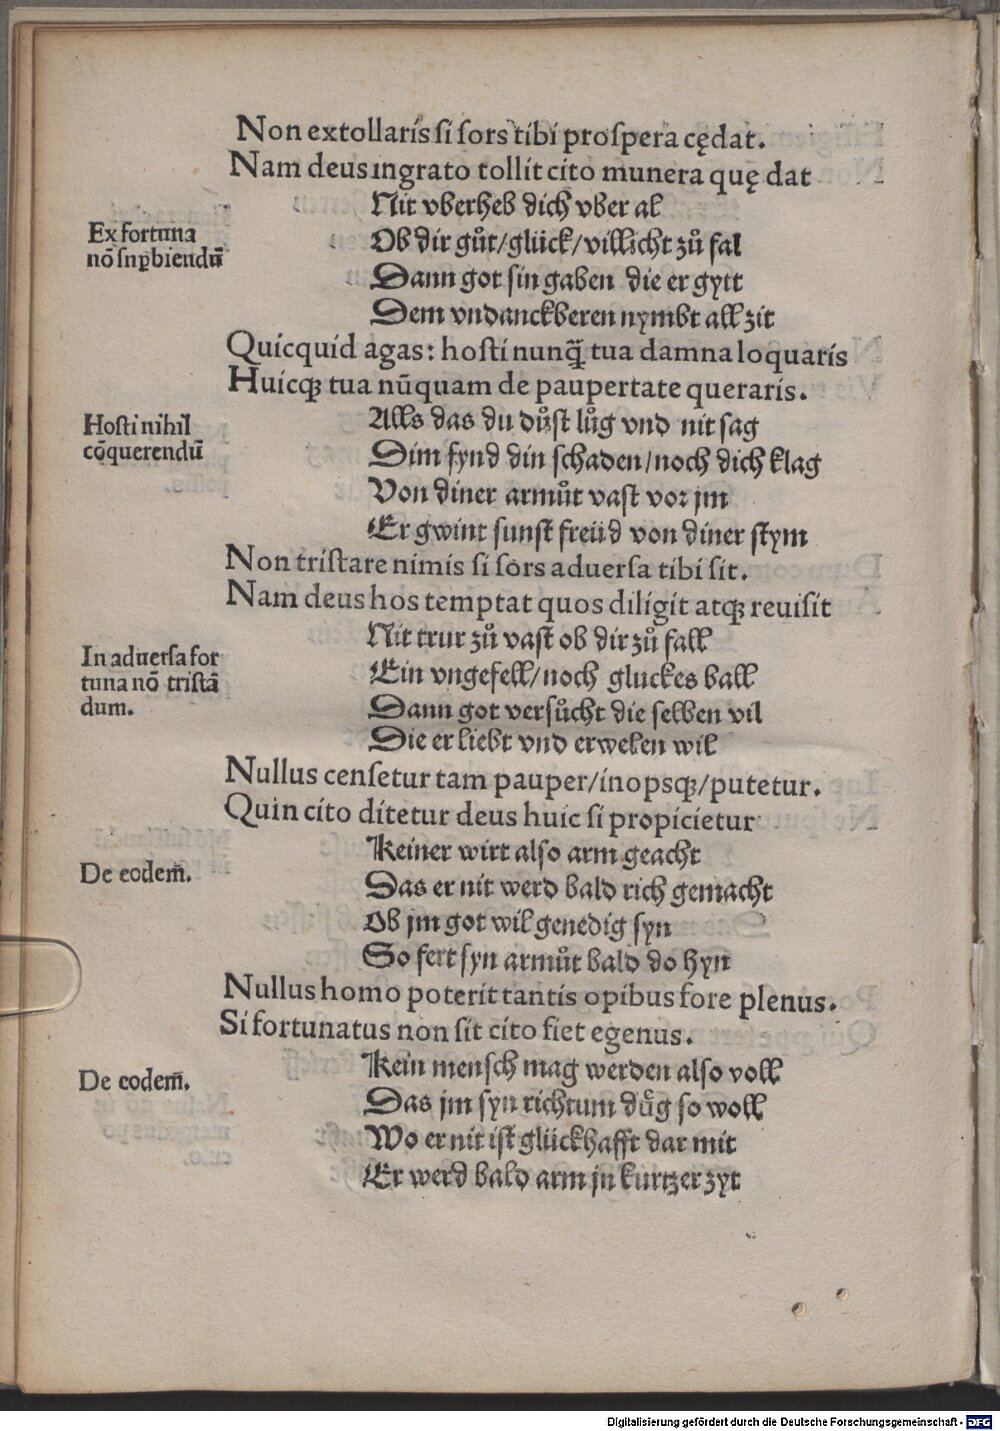 Non extollaris si sors tibi proſpera cędat.
Nam deus ingrato tollit cito munera quę dat
Nit vberheb dich vber al
Ex fortuna
nō ſuꝑbiendū
Ob dir gůt/glück/villicht zů fal
Dann got sin gaben die er gytt
Dem vndanckberen nymbt all zit
Quicquid agas: hoſti nunꝗ̄ tua damna loquaris
Huicqꝫ tua nūquam de paupertate queraris.
Hoſti nihil
cōquerendū
Alls das du důſt lůg vnd nit sag
Dim fynd din schaden/noch dich klag
Von diner armůt vaſt vor jm
Er gwint sunſt freüd von diner ſtym
Non triſtare nimis si sors aduerſa tibi sit.
Nam deus hos temptat quos diligit atqꝫ reuiſit
In aduerſa for
tuna nō triſtā
dum.
Nit trur zů vaſt ob dir zů fall
Ein vngefell/noch gluckes ball
Dann got verſůcht die selben vil
Die er liebt vnd erwelen wil
Nullus cenſetur tam pauper/inopsqꝫ/putetur.
Quin cito ditetur deus huic si propicietur
De eodem̄.
Keiner wirt also arm geacht
Das er nit werd bald rich gemacht
Ob jm got wil genedig syn
So fert syn armůt bald do hyn
Nullus homo poterit tantis opibus fore plenus.
Si fortunatus non sit cito fiet egenus.
De eodem̄.
Kein mensch mag werden also voll
Das jm syn richtum düg so woll
Wo er nit iſt glückhafft dar mit
Er werd bald arm jn kurtzer zyt
Digitalisierung gefördert durch die Deutsche Forschungsgemeinschaft - DFG